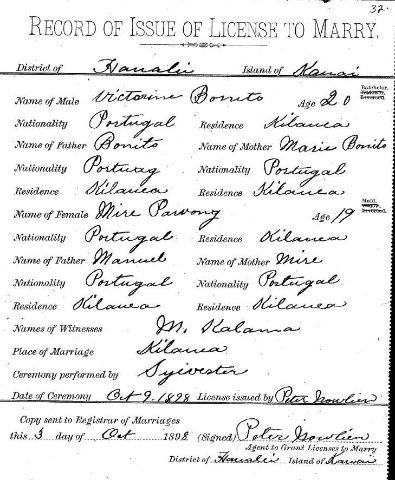 37.
RECORD OF ISSUE OF LICENSE TO MARRY.
District of Hanalei Island of Kauai
Name of Male Victorine Bonito Age 20 Bachelor.
Nationality Portugal Residence Kilauea
Name of Father Bonito Name of Mother Marie Bonito
Nationality Portugal Nationality Portugal
Residence Kilauea Residence Kilauea
Name of Female Mire Pavong Age 19 Maid.
Nationality Portugal Residence Kilauea
Name of Father Manuel Name of Mother Mire
Nationality Portugal Nationality Portugal
Residence Kilauea Residence Kilauea
Names of Witnesses M. Kalama
Place of Marriage Kilauea
Ceremony performed by Sylvester
Date of Ceremony Oct 9. 1898 License issued by Peter Nowlien
Copy sent to Registrar of Marriages
this 3 day of Oct 1898 (Signed) Peter Nowlien
Agent to Grant Licenses to Marry
District of Hanalei Island of Kauai